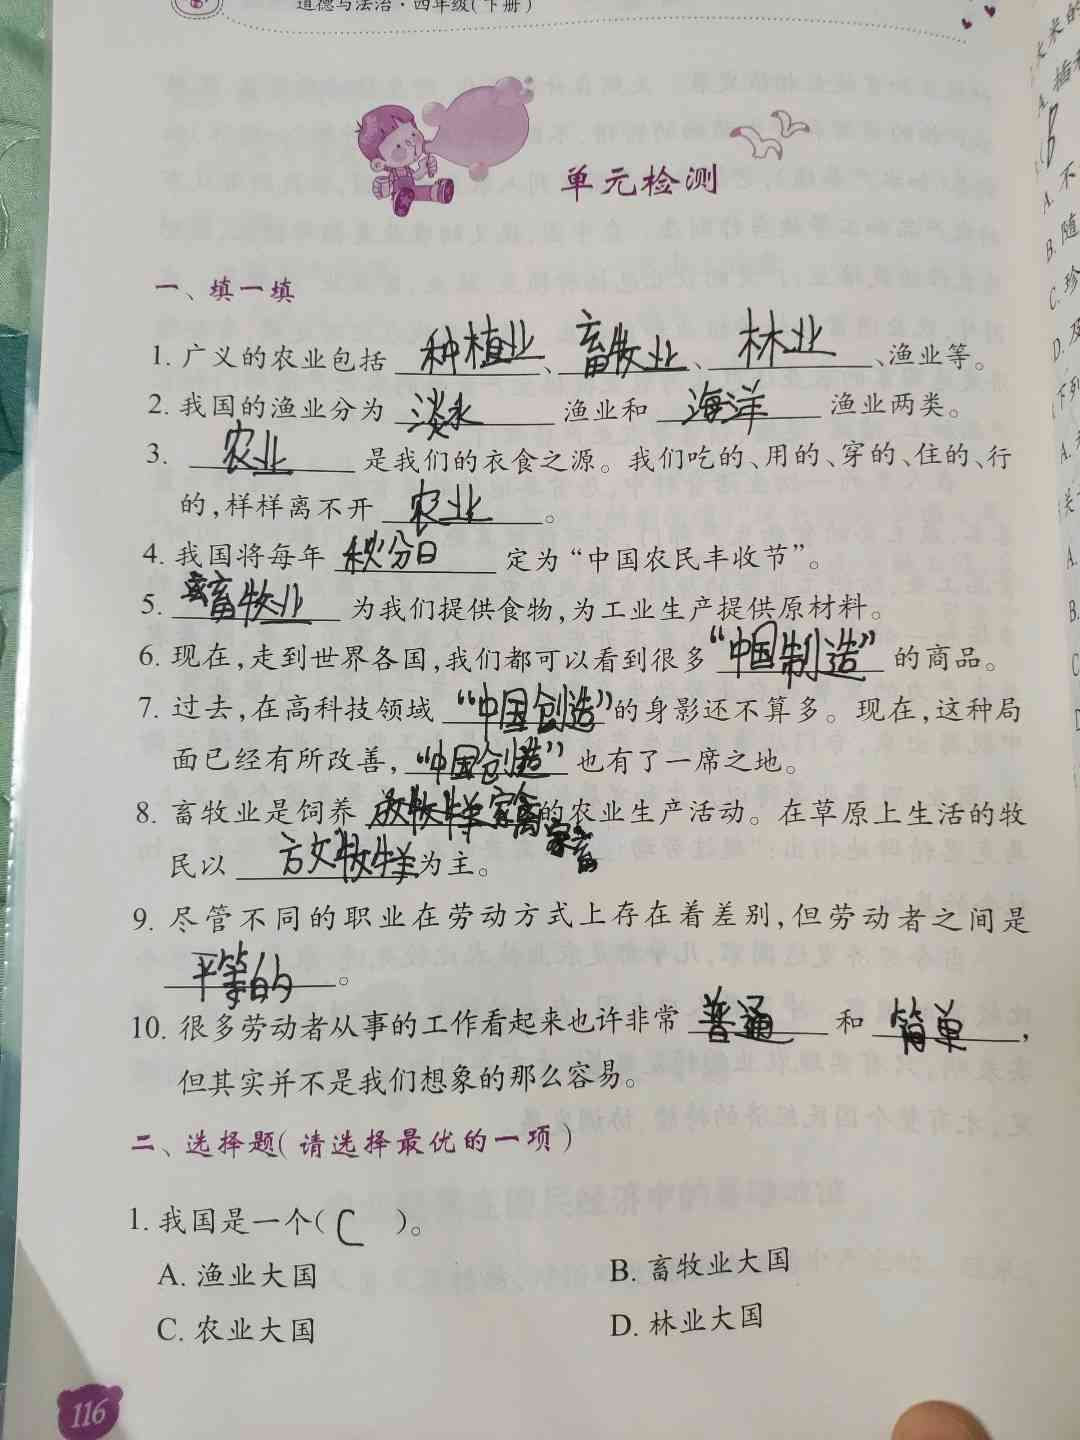 道德与法治·四年级(下册)
单元检测
一、填一填
1. 广义的农业包括 种植业、畜牧业、林业、渔业等。
2. 我国的渔业分为 淡水 渔业和 海洋 渔业两类。
3. 农业 是我们的衣食之源。我们吃的、用的、穿的、住的、行
的,样样离不开 农业。
4. 我国将每年 秋分日 定为“中国农民丰收节”。
5. 畜牧业 为我们提供食物,为工业生产提供原材料。
6. 现在,走到世界各国,我们都可以看到很多“中国制造”的商品。
7. 过去,在高科技领域“中国创造”的身影还不算多。现在,这种局
面已经有所改善,“中国创造”也有了一席之地。
8. 畜牧业是饲养 放牧 家禽 家畜 的农业生产活动。在草原上生活的牧
民以 放牧羊 为主。
9. 尽管不同的职业在劳动方式上存在着差别,但劳动者之间是
平等的。
10. 很多劳动者从事的工作看起来也许非常 普通 和 简单,
但其实并不是我们想象的那么容易。
二、选择题(请选择最优的一项)
1. 我国是一个( C )。
A. 渔业大国 B. 畜牧业大国
C. 农业大国 D. 林业大国
116
A. 不
B. 随
C. 珍
D. 及
下列